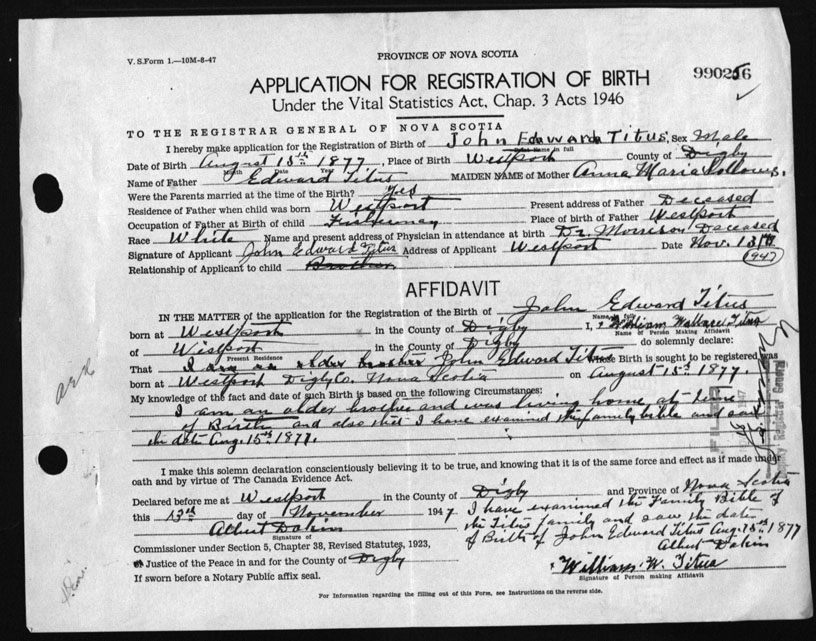 V. S. Form 1.—10M-8-47
PROVINCE OF NOVA SCOTIA
990256
APPLICATION FOR REGISTRATION OF BIRTH
Under the Vital Statistics Act, Chap. 3 Acts 1946
TO THE REGISTRAR GENERAL OF NOVA SCOTIA
I hereby make application for the Registration of Birth of John Edward Titus, Sex Male
Name in full
Date of Birth August 15th 1877, Place of Birth Westport County of Digby
Month Date Year
Name of Father Edward Titus MAIDEN NAME of Mother Anna Maria
Were the Parents married at the time of Birth? Yes
Residence of Father when child was born Westport Present address of Father Deceased
Occupation of Father at Birth of child Fisherman Place of birth of Father Westport
Race White Name and present address of Physician in attendance at birth Dr. Morrison Deceased
Signature of Applicant John Edward Titus Address of Applicant Westport Date Nov. 13th
1947
Relationship of Applicant to child Brother
AFFIDAVIT
IN THE MATTER of the application for the Registration of the Birth of John Edward Titus
Name in full
born at Westport in the County of Digby I, William Wallace Titus
Name of Person Making Affidavit
of Westport in the County of Digby do solemnly declare:
Present Residence
That I am an older brother John Edward Titus whose Birth is sought to be registered was
born at Westport Digby Co. Nova Scotia on August 15th 1877.
My knowledge of the fact and date of such Birth is based on the following Circumstances:
I am an older brother and was living home at time
of Birth and also that I have examined the family bible and saw
the date Aug. 15th 1877.
FILED
Registrar General
I make this solemn declaration conscientiously believing it to be true, and knowing that it is of the same force and effect as if made under
oath and by virtue of The Canada Evidence Act.
Declared before me at Westport in the County of Digby and Province of Nova Scotia
this 13th day of November 1947
I have examined the Family Bible of
the Titus family and saw the date
of Birth of John Edward Titus Aug. 15th 1877
Albert Dakin
Albert Dakin
Signature of
Commissioner under Section 5, Chapter 38, Revised Statutes, 1923,
or Justice of the Peace in and for the County of Digby
William W. Titus
Signature of Person making Affidavit
If sworn before a Notary Public affix seal.
For Information regarding the filling out of this Form, see Instructions on the reverse side.